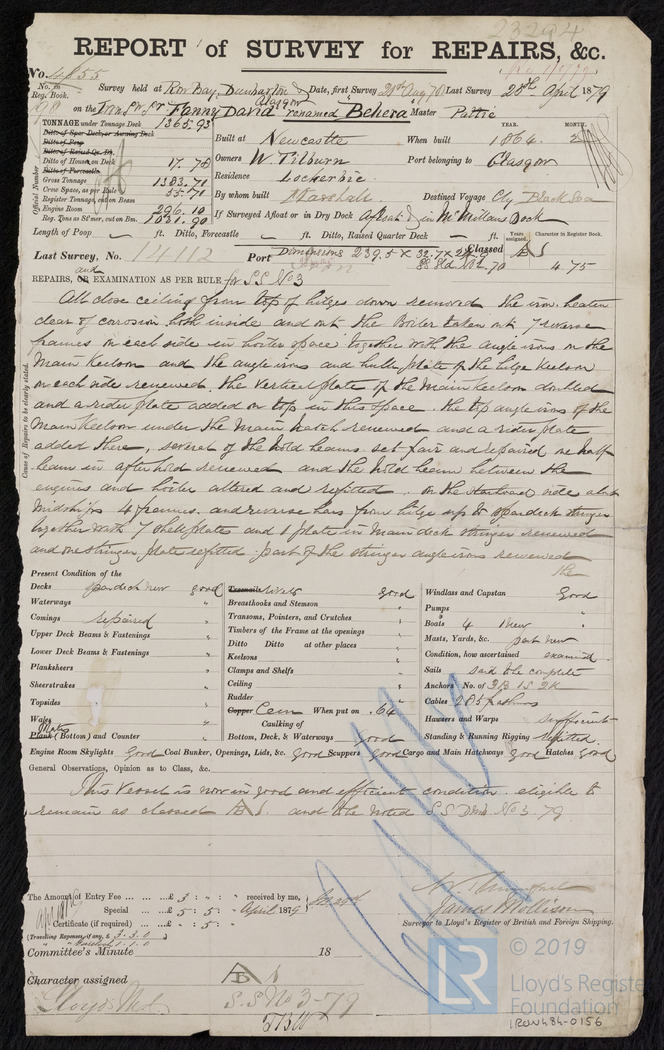 23294
REPORT of SURVEY for REPAIRS, &c.
No. 4855 Survey held at Row Bay, Dumbarton & Glasgow Date, first Survey 21st Aug 78 Last Survey 25th April 1879
No. in Reg. Book.
on the Iron Sr Sr Fanny David renamed "Behera" Master Pattie
TONNAGE under Tonnage Deck 1365.93
Ditto of Spar Deck or Awning Deck
Ditto of Poop
Ditto of Raised Qr. Dk.
Ditto of House on Deck 17.78
Ditto of Forecastle
Gross Tonnage 1383.71
Crew Space, as per Rule 55.71
Register Tonnage, cut on Beam
Engine Room 296.10
Reg. Tons as St'mer, cut on Bm. 1031.90
Official Number
Built at Newcastle When built YEAR. 1864 MONTH. 2
Owners W. Tilburn Port belonging to Glasgow
Residence Lockerbie
By whom built Marshall Destined Voyage Cly Black Sea
If Surveyed Afloat or in Dry Dock afloat & in McMillans Dock
Length of Poop ft. Ditto, Forecastle ft. Ditto, Raised Quarter Deck ft. Years assigned. Character in Register Book.
Last Survey, No. 14112 Port Classed A 1
Dimensions 239.5 X 32.7 X
70 4.75
REPAIRS, OR and EXAMINATION AS PER RULE for S.S No 3
Cause of Repairs to be clearly stated.
All close ceiling from top of bilges down removed the iron beaten
clear of corrosion both inside and out the Boiler taken out 7 reverse
frames on each side in boiler space together with the angle irons on the
Main Keelson and the angle irons and bulb plate of the bilge Keelson
on each side renewed, the vertical plate of the Main Keelson doubled
and a rider plate added on top in this space. the top angle irons of the
Main Keelson under the Main hatch renewed and a rider plate
added there, several of the hold beams set fair and repaired one half
beam in after hold renewed and the hold beam between the
engines and boiler altered and refitted. on the starboard side abt
Midships 4 frames and reverse bars from bilge up to spardeck stringer
together with 7 shell plates and 1 plate in Main deck stringer renewed
and one stringer plate refitted part of the stringer angle irons renewed
the
Present Condition of the
Decks spardeck new good
Waterways "
Comings repaired "
Upper Deck Beams & Fastenings "
Lower Deck Beams & Fastenings "
Planksheers "
Sheerstrakes "
Topsides "
Wales "
Plank Plates (Bottom) and Counter "
Treenails Rivets good
Breasthooks and Stemson "
Transoms, Pointers, and Crutches "
Timbers of the Frame at the openings "
Ditto Ditto at other places "
Keelsons "
Clamps and Shelfs "
Ceiling "
Rudder "
Copper Cem When put on .64
Caulking of
Bottom, Deck, & Waterways good
Windlass and Capstan Good
Pumps "
Boats 4 1 new "
Masts, Yards, &c. part new "
Condition, how ascertained examined
Sails said to be complete
Anchors No. of 3B 1S 2K
Cables 285 fathoms
Hawsers and Warps sufficient
Standing & Running Rigging refitted.
Engine Room Skylights Good Coal Bunker, Openings, Lids, &c. good Scuppers good Cargo and Main Hatchways good Hatches Good
General Observations, Opinion as to Class, &c.
This Vessel is now in good and efficient condition. eligible to
remain as classed A 1. and to be noted S.S Dmb. No 3-79
The Amount of Entry Fee £ 3 : " : " received by me,
Special £ 5 : 5 : " April 1879
Certificate (if required) £ " : 5 : "
(Travelling Expenses, if any, £ 3.3.0)
1.1.0
James Mollison
Surveyor to Lloyd's Register of British and Foreign Shipping.
Committee's Minute 18
Character assigned A 1
S.S No 3-79
LR
© 2019
Lloyd's Register
Foundation
IRON484-0156